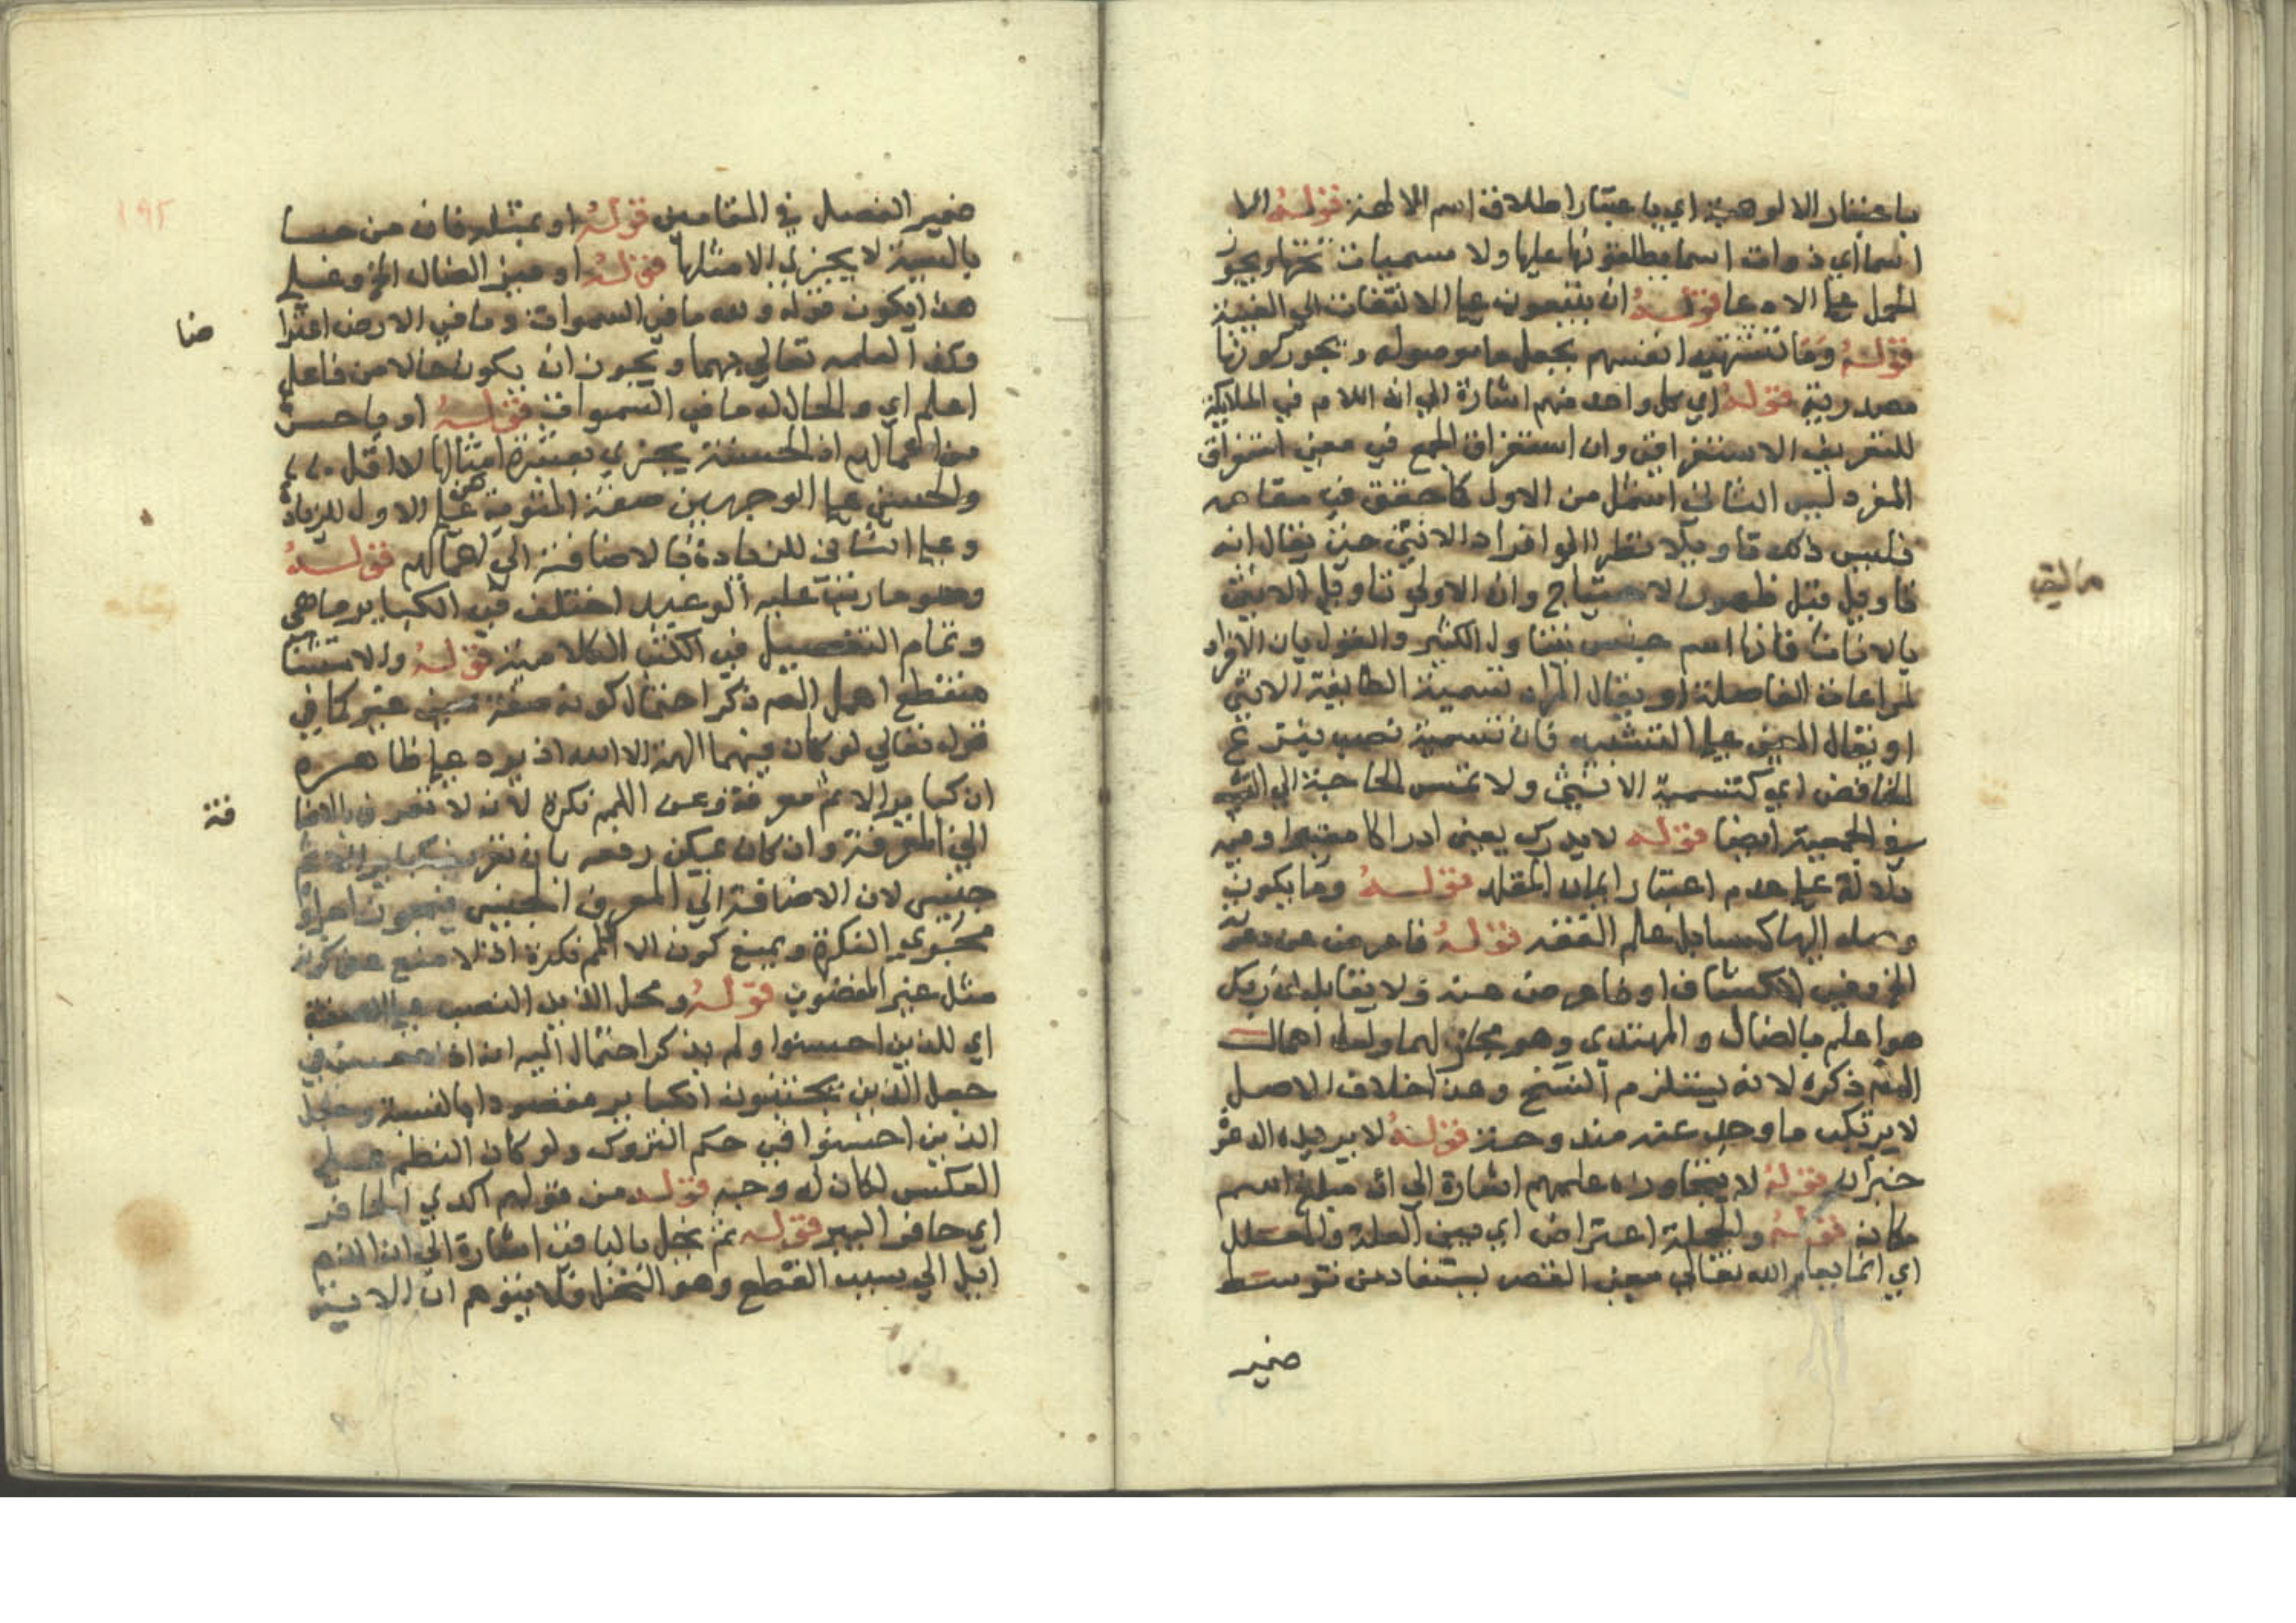 باعتبار الالوهية اي باعتبار اطلاق اسم الالهة قوله الا
اسما اي ذوات اسما يطلقونها عليها ولا مسميات تحتها ويجوز
الحمل على الادعا قوله ان يتبعون على الالتفات الي الغيبة
قوله وما تشتهيه انفسهم بجعل ما موصوله ويجوز كونها
مصدرية قوله اي كل واحد منهم اشارة الي ان اللام في الملايكة
للتعريف الاستغراقي وان استغراق الجمع في معني استغراق
المفرد ليس الثاني اشمل من الاول كما حقق في مقامه
فليس ذلك تاويلا نظرا الي افراد الانثي حتي يقال انه
تاويل قبل ظهور الاحتياج وان الاولي تاويل الانثي
بالاناث فانها اسم جنس يتناول الكثير والقول بان الافراد
لمراعات الفاصلة او يقال المراد تسمية الطايفة الانثي
او يقال المعني على التشبيه فان تسمية نصب بنزع
الخافض اي كتسمية الانثي ولا تمس الحاجة الي
في الجمعية ايضا قوله لا يدرك يعني ادراكا معتبرا وفيه
دلالة على عدم اعتبار ايمان المقلد قوله وما يكون
وصله اليها كمسايل علم الفقه قوله فاعرض عن دعوته
الخ وفي الكشاف او فاعرض عنه ولا تقابله ان ربك
هو اعلم بالضال والمهتدي وهو مجازيهما ولعل اهمال
المص ذكره لانه يستلزم النسخ وهذا خلاف الاصل
لا يرتكب ما وجد عنه مندوحة قوله لا يريده الدعوة
خيرا قوله لا يتجاوزه علمهم اشارة الي ان مبلغ اسم
مكان قوله والجملة اعتراض اي بين العلة والمعلل
اي انما يعلم الله تعالي معني القصر يستفاد من توسط
ضمير
مالية
ضمير الفصل في المقامين قوله او بمثله فان من جا
بالسيئة لا يجزي الا مثلها قوله او ميز الضال الخ وعلي
هذا يكون قوله ولله ما في السموات وما في الارض اعترا
ضا
وكذا لعلمه تعالي بهما ويجوز ان يكون حالا من فاعل
اعلم اي والحال له ما في السموات قوله او باحسن
من اعمالهم اذ الحسنة يجزي بعشرة امثالها لا اقل
والحسني على الوجهين صفة المثوبة هي علي الاول للزيادة
وعلى الثاني للزيادة بالاضافة الي اعمالهم قوله
وهو ما رتب عليه الوعيد اختلف في الكباير ما هي
وتمام التفصيل في الكتب الكلامية قوله والاستثنا
منقطع اهمل المص ذكر احتمال كونه صفة بمعني غير كما في
قوله تعالي لو كان فيهما الهة الا الله اذ يرد على ظاهره
ان كباير الاثم معرفة وعن اللمم نكرة لانه لا تعرف بالاضا
فة
الي المعرفة وان كان يمكن رفعه بان تعريف كباير الاثم
جنسي لان الاضافة الي المعرف الجنسي فيجوز اجراؤه
مجري النكرة ويمنع كون الا اللمم نكرة اذ لا منع عن كونه
مثل غير المغضوب قوله ومحل الذين النصب على الصفة
اي للذين احسنوا ولم يذكر احتمال البيان اذ
جعل الذين يجتنبون الكباير مقصودا بالنسبة وجعل
الذين احسنوا في حكم المتروك ولو كان النظم علي
العكس لكان له وجه قوله من قولهم اكدي الحافر
اي حافر البير قوله ثم بخل بالباقي اشارة الي ان الذم
ايل الي سبب القطع وهو البخل فلا يتوهم ان الاية
١٩٢